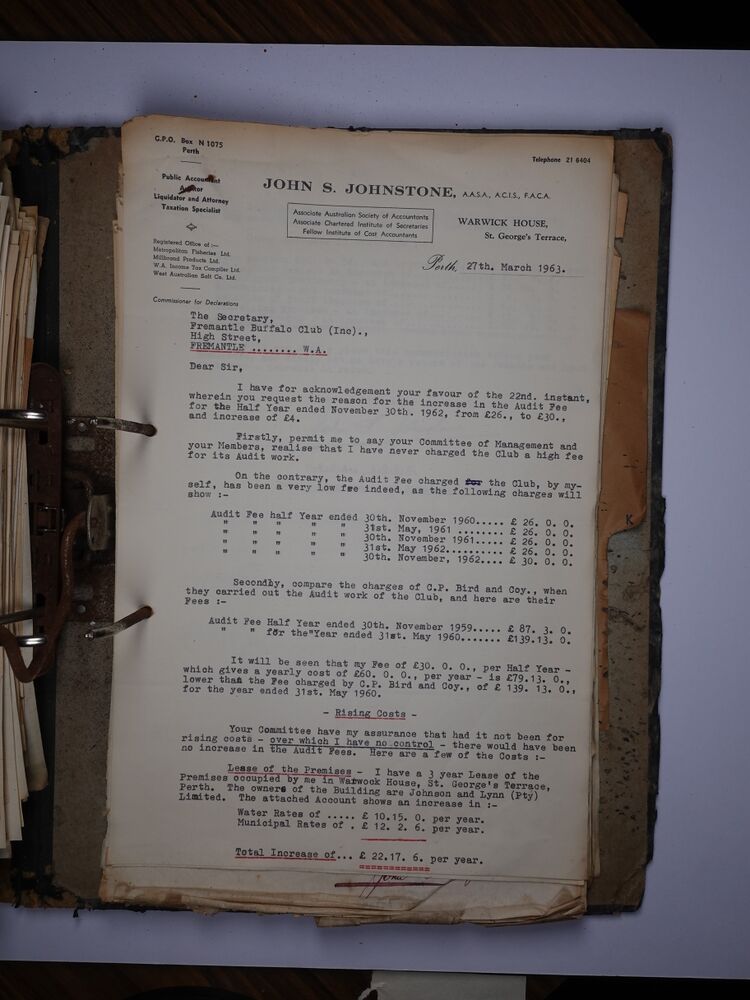 G.P.O. Box N 1075
Perth
Telephone 21 6404
Public Accountant
Auditor
Liquidator and Attorney
Taxation Specialist
JOHN S. JOHNSTONE, A.A.S.A., A.C.I.S., F.A.C.A.
Associate Australian Society of Accountants
Associate Chartered Institute of Secretaries
Fellow Institute of Cost Accountants
WARWICK HOUSE,
St. George's Terrace,
Registered Office of :—
Metropolitan Fisheries Ltd.
Millbrand Products Ltd.
W.A. Income Tax Compiler Ltd.
West Australian Salt Co. Ltd.
Perth, 27th. March 1963.
Commissioner for Declarations
The Secretary,
Fremantle Buffalo Club (Inc).,
High Street,
FREMANTLE ........ W.A.
Dear Sir,
I have for acknowledgement your favour of the 22nd. instant,
wherein you request the reason for the increase in the Audit Fee
for the Half Year ended November 30th. 1962, from £26., to £30.,
and increase of £4.
Firstly, permit me to say your Committee of Management and
your Members, realise that I have never charged the Club a high fee
for its Audit work.
On the contrary, the Audit Fee charged for the Club, by my-
self, has been a very low fee indeed, as the following charges will
show :-
Audit Fee half Year ended 30th. November 1960..... £ 26. 0. 0.
" " " " " 31st. May, 1961 ........ £ 26. 0. 0.
" " " " " 30th. November 1961..... £ 26. 0. 0.
" " " " " 31st. May 1962.......... £ 26. 0. 0.
" " " " " 30th. November, 1962.... £ 30. 0. 0.
Secondly, compare the charges of C.P. Bird and Coy., when
they carried out the Audit work of the Club, and here are their
Fees :-
Audit Fee Half Year ended 30th. November 1959..... £ 87. 3. 0.
" " for the"Year ended 31st. May 1960....... £139.13. 0.
It will be seen that my Fee of £30. 0. 0., per Half Year -
which gives a yearly cost of £60. 0. 0., per year - is £79.13. 0.,
lower than the Fee charged by C.P. Bird and Coy., of £ 139. 13. 0.,
for the year ended 31st. May 1960.
- Rising Costs -
Your Committee have my assurance that had it not been for
rising costs - over which I have no control - there would have been
no increase in the Audit Fees. Here are a few of the Costs :-
Lease of the Premises - I have a 3 year Lease of the
Premises occupied by me in Warwock House, St. George's Terrace,
Perth. The owners of the Building are Johnson and Lynn (Pty)
Limited. The attached Account shows an increase in :-
Water Rates of ..... £ 10.15. 0. per year.
Municipal Rates of . £ 12. 2. 6. per year.
Total Increase of... £ 22.17. 6. per year.
K